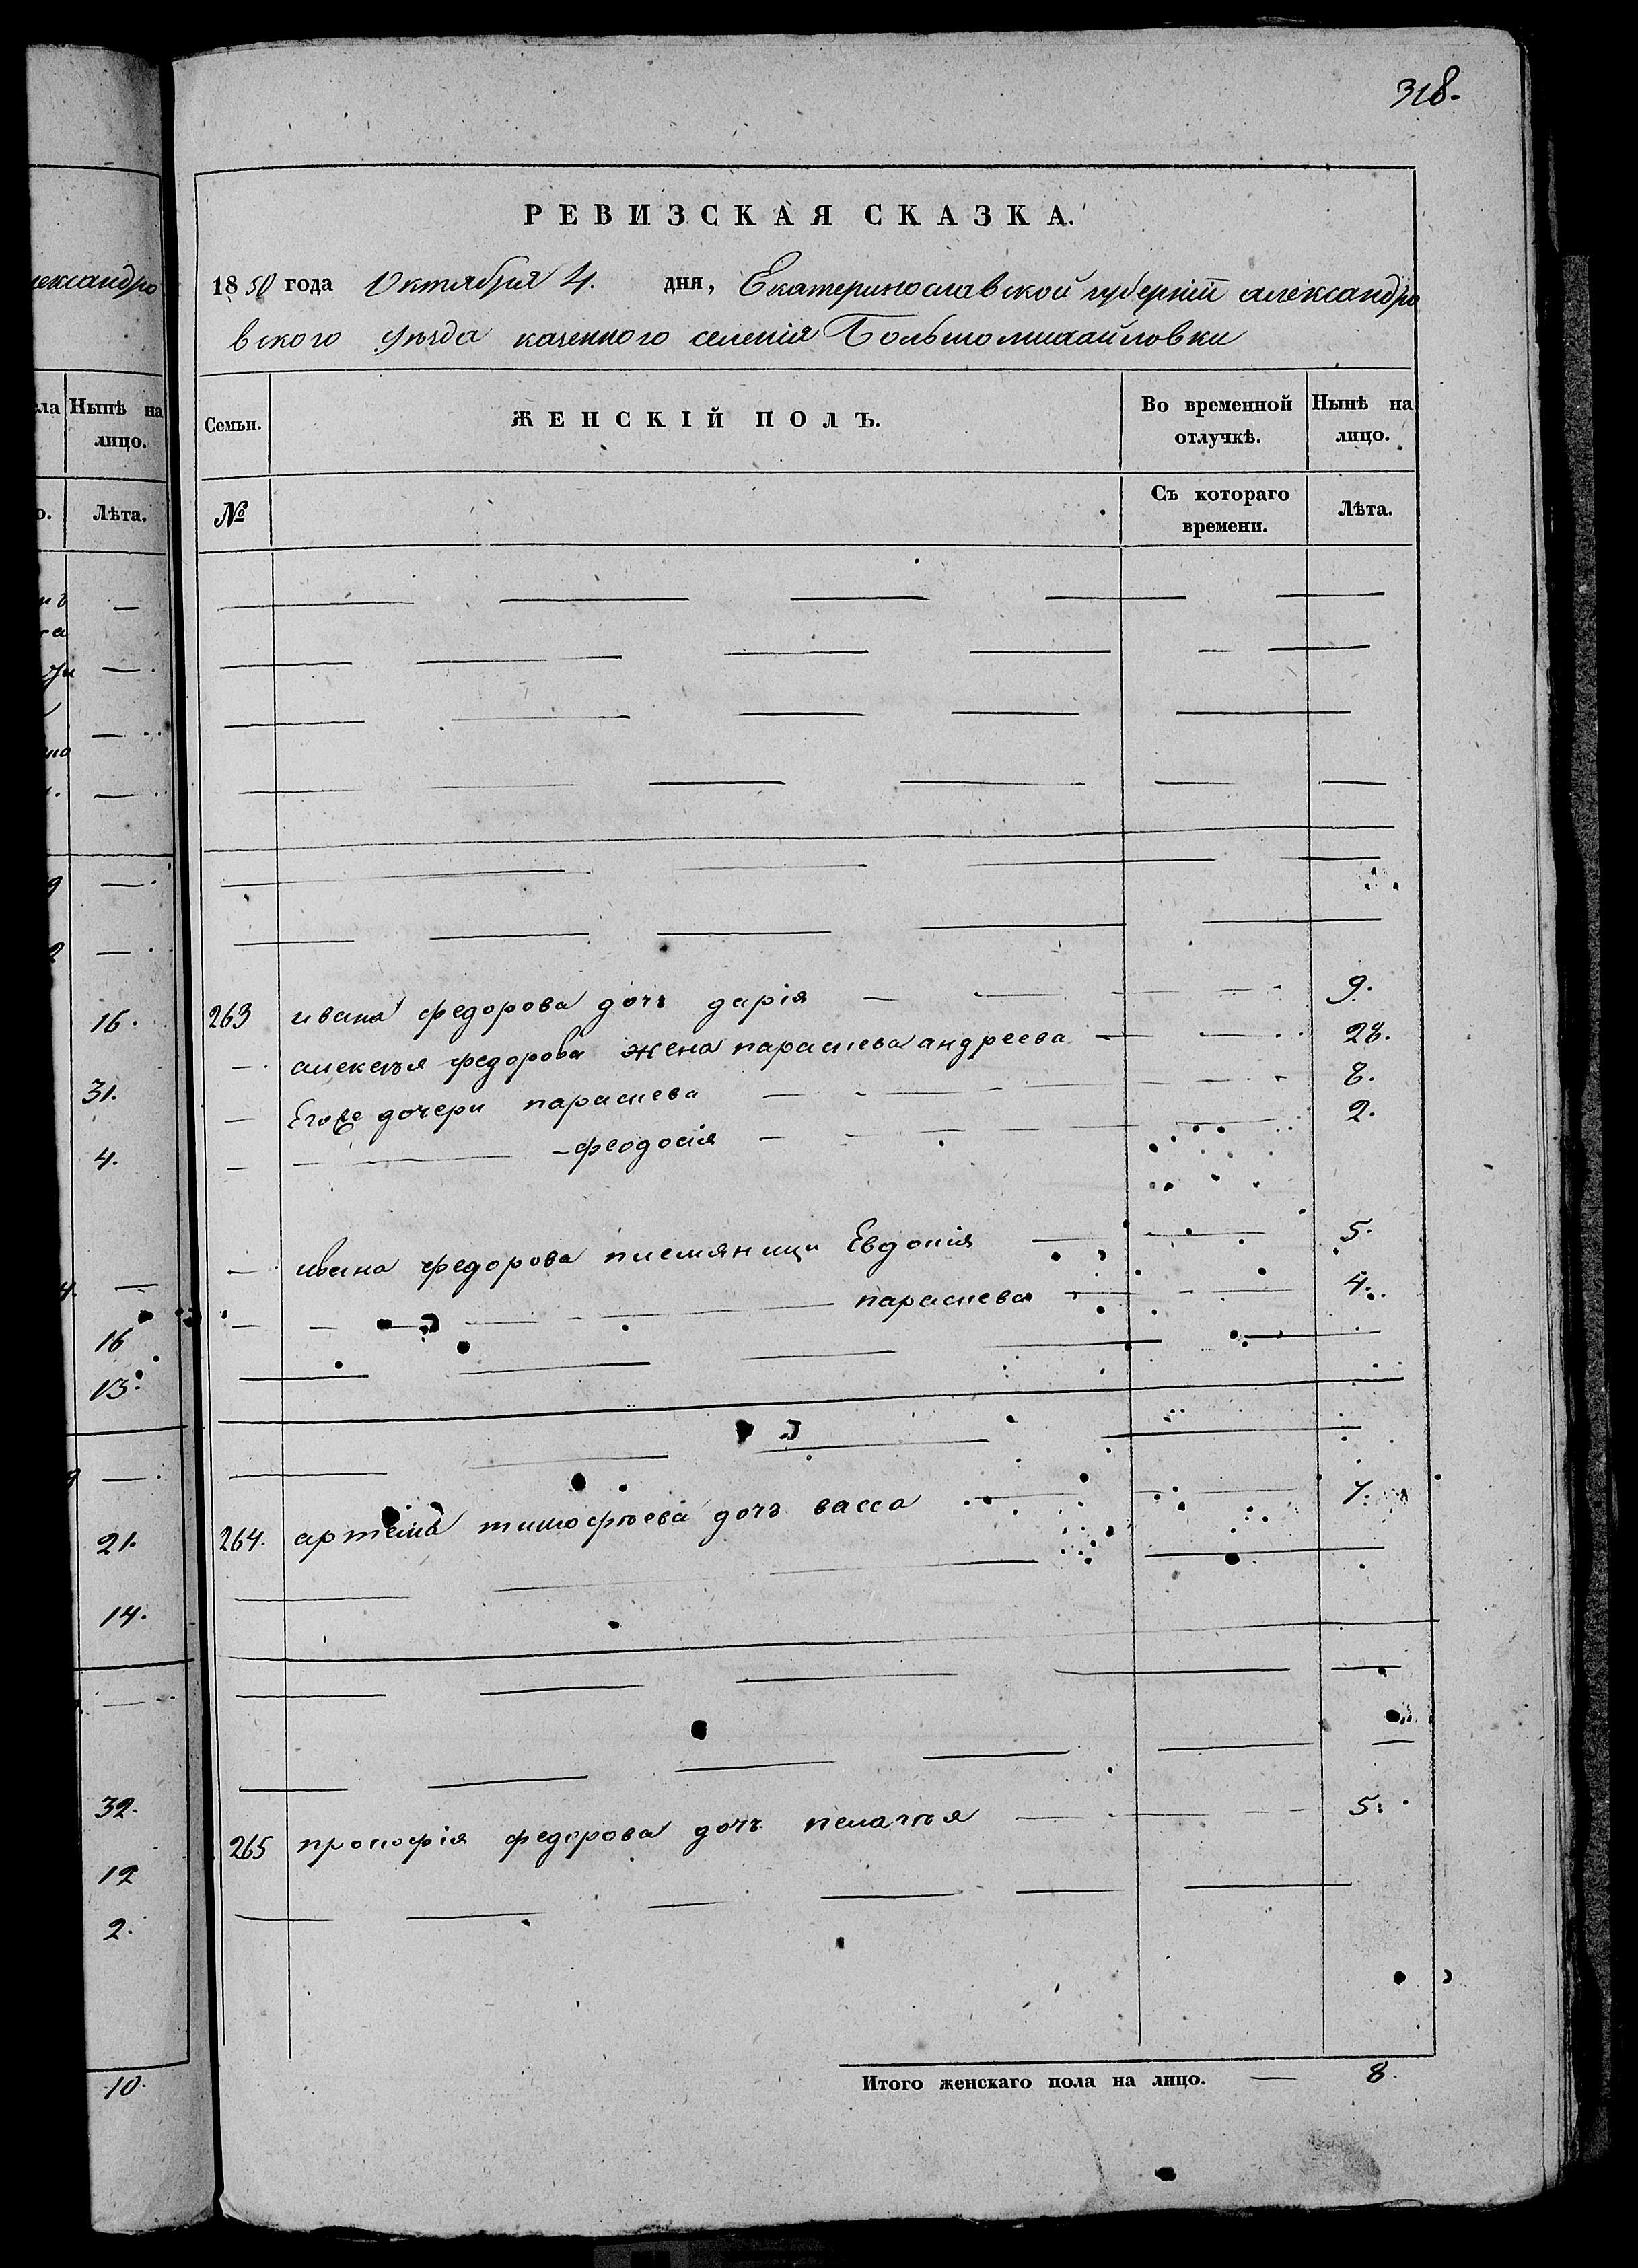 318.
лександро
РЕВИЗСКАЯ СКАЗКА.
1850 года Октября 4. дня, Екатеринославской губерніи александро
вского уѣзда казенного селенія Большомихайловки
ла
Нынѣ на
лицо.
Лѣта.
Семьи.
ЖЕНСКІЙ ПОЛЪ.
Во временной
отлучкѣ.
Нынѣ на
лицо.
№
Съ котораго
времени.
Лѣта.
16.
263 ивана федорова дочь дарія 9.
31.
алексѣя федорова жена параскева андреева 28.
Егоже дочери параскева 8.
4.
феодосія 2.
ивана федорова племяницы Евдокія 5.
параскева 4.
16
13.
21.
264. артема тимофѣева дочь васса 7.
14.
32.
265 прокофія федорова дочь пелагѣя 5.
12
2.
10.
Итого женскаго пола на лицо. — 8.